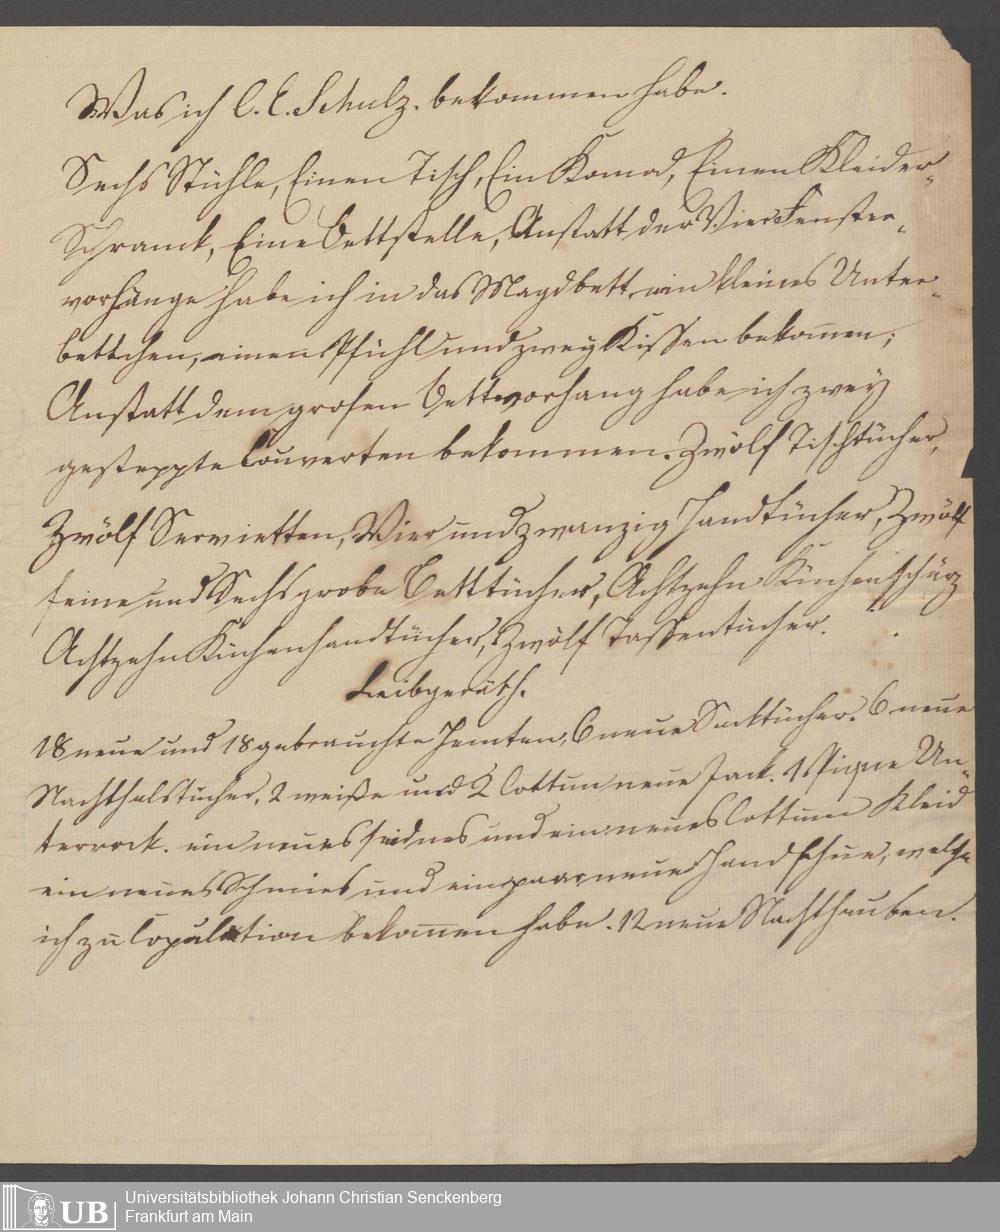 Was ich C. E. Schulz. bekommen habe.
Sechs Stühle, Einen Tisch, Ein Komod, Einen Kleider-
Schranck, Eine Bettstelle, Anstatt der Vier Fenster-
vorhänge habe ich in das Magdbett ein kleines Unter-
bettchen, einen Pfühl und zwey Kissen bekom̅en;
Anstatt dem grosen Bettvorhang habe ich zwey
gesteppte Couverten bekommen. Zwölf Tischtücher,
Zwölf Servietten, Vier und zwanzig Handtücher, Zwölf
feine und Sechs grobe Betttücher, Achtzehn Küchenschürz
Achtzehn Küchenhandtücher, Zwölf Tassentücher.
Leibgeräth.
18 neue und 18 gebrauchte Hemten, 6 neue Sacktücher. 6 neue
Nachthalstücher, 2 weiße und 2 Cottun neue Jack. 1 Pique Un-
terrock. ein neues seidnes und ein neues Cottun Kleid
ein neues und ein paar neue Handschue, welche
ich zu Copulation bekom̅en habe. 12 neue Nachthauben.
UB
Universitätsbibliothek Johann Christian Senckenberg
Frankfurt am Main